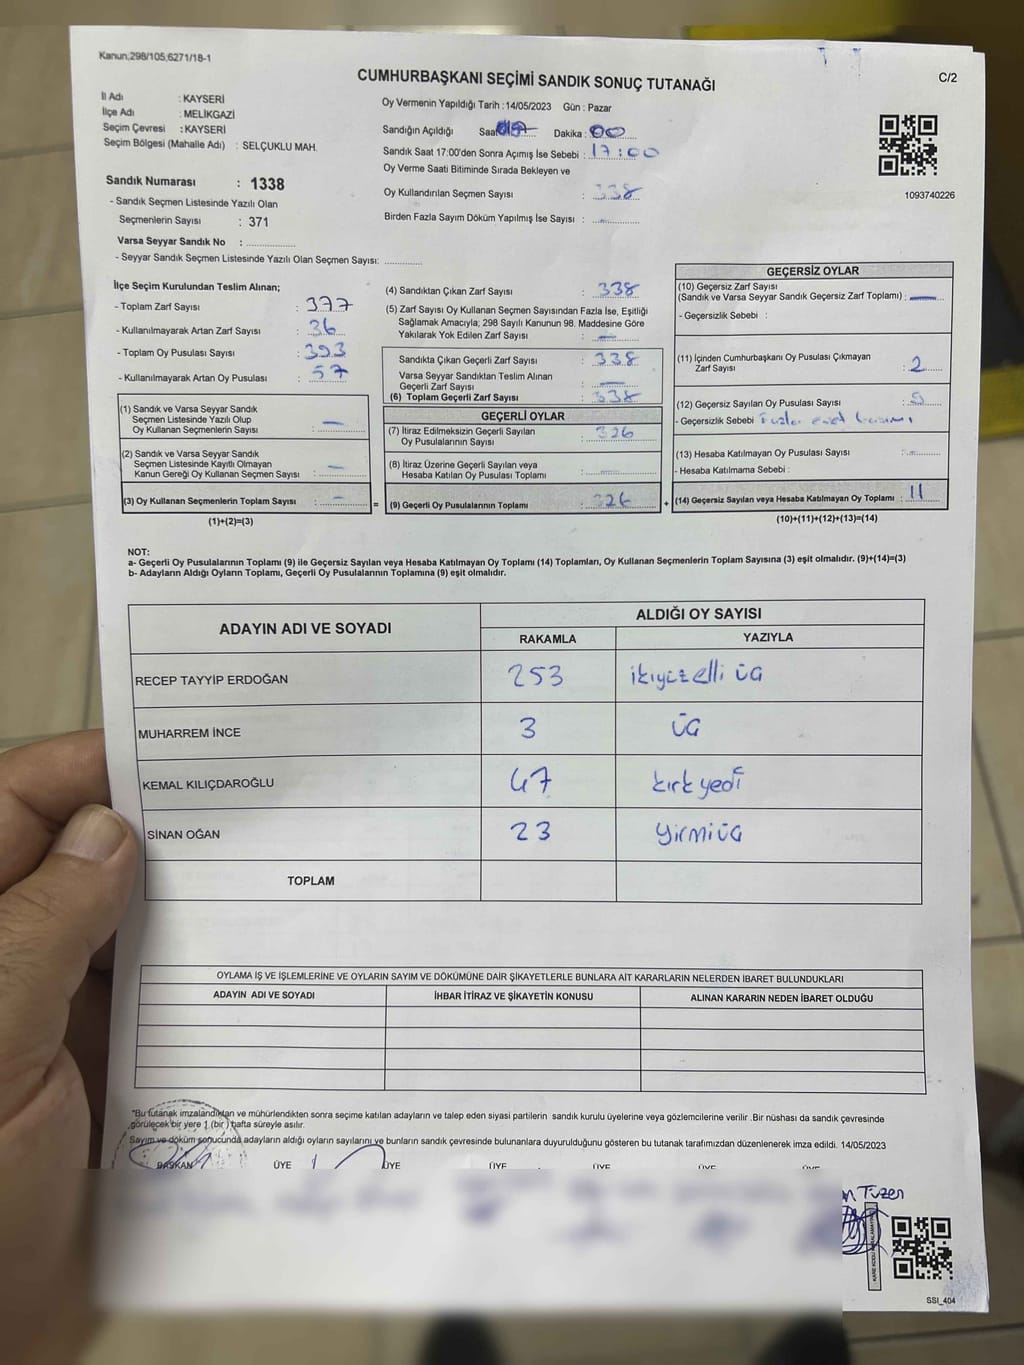 Kanun;298/105;6271/18-1
CUMHURBAŞKANI SEÇİMİ SANDIK SONUÇ TUTANAĞI
C/2
İl Adı : KAYSERİ
İlçe Adı : MELİKGAZİ
Seçim Çevresi : KAYSERİ
Seçim Bölgesi (Mahalle Adı) : SELÇUKLU MAH.
Sandık Numarası : 1338
- Sandık Seçmen Listesinde Yazılı Olan
Seçmenlerin Sayısı : 371
Varsa Seyyar Sandık No : ................
- Seyyar Sandık Seçmen Listesinde Yazılı Olan Seçmen Sayısı: ............
Oy Vermenin Yapıldığı Tarih : 14/05/2023 Gün : Pazar
Sandığın Açıldığı Saat Dakika : 00
Sandık Saat 17:00'den Sonra Açımış İse Sebebi : 17:00
Oy Verme Saati Bitiminde Sırada Bekleyen ve
Oy Kullandırılan Seçmen Sayısı : 338
Birden Fazla Sayım Döküm Yapılmış İse Sayısı :
1093740226
İlçe Seçim Kurulundan Teslim Alınan;
- Toplam Zarf Sayısı : 377
- Kullanılmayarak Artan Zarf Sayısı : 36
- Toplam Oy Pusulası Sayısı : 393
- Kullanılmayarak Artan Oy Pusulası : 57
(1) Sandık ve Varsa Seyyar Sandık
Seçmen Listesinde Yazılı Olup
Oy Kullanan Seçmenlerin Sayısı : —
(2) Sandık ve Varsa Seyyar Sandık
Seçmen Listesinde Kayıtlı Olmayan
Kanun Gereği Oy Kullanan Seçmen Sayısı : —
(3) Oy Kullanan Seçmenlerin Toplam Sayısı : — =
(1)+(2)=(3)
(4) Sandıktan Çıkan Zarf Sayısı : 338
(5) Zarf Sayısı Oy Kullanan Seçmen Sayısından Fazla İse, Eşitliği
Sağlamak Amacıyla; 298 Sayılı Kanunun 98. Maddesine Göre
Yakılarak Yok Edilen Zarf Sayısı : —
Sandıkta Çıkan Geçerli Zarf Sayısı : 338
Varsa Seyyar Sandıktan Teslim Alınan
Geçerli Zarf Sayısı : —
(6) Toplam Geçerli Zarf Sayısı : 338
GEÇERLİ OYLAR
(7) İtiraz Edilmeksizin Geçerli Sayılan : 326
Oy Pusulalarının Sayısı
(8) İtiraz Üzerine Geçerli Sayılan veya
Hesaba Katılan Oy Pusulası Toplamı : —
(9) Geçerli Oy Pusulalarının Toplamı : 326 +
GEÇERSİZ OYLAR
(10) Geçersiz Zarf Sayısı
(Sandık ve Varsa Seyyar Sandık Geçersiz Zarf Toplamı) : —
- Geçersizlik Sebebi :
(11) İçinden Cumhurbaşkanı Oy Pusulası Çıkmayan
Zarf Sayısı : 2
(12) Geçersiz Sayılan Oy Pusulası Sayısı : 9
- Geçersizlik Sebebi
(13) Hesaba Katılmayan Oy Pusulası Sayısı : —
- Hesaba Katılmama Sebebi :
(14) Geçersiz Sayılan veya Hesaba Katılmayan Oy Toplamı : 11
(10)+(11)+(12)+(13)=(14)
NOT:
a- Geçerli Oy Pusulalarının Toplamı (9) ile Geçersiz Sayılan veya Hesaba Katılmayan Oy Toplamı (14) Toplamları, Oy Kullanan Seçmenlerin Toplam Sayısına (3) eşit olmalıdır. (9)+(14)=(3)
b- Adayların Aldığı Oyların Toplamı, Geçerli Oy Pusulalarının Toplamına (9) eşit olmalıdır.
ADAYIN ADI VE SOYADI ALDIĞI OY SAYISI
RAKAMLA YAZIYLA
RECEP TAYYİP ERDOĞAN 253 ikiyüzelli üç
MUHARREM İNCE 3 üç
KEMAL KILIÇDAROĞLU 47 kırk yedi
SİNAN OĞAN 23 yirmi üç
TOPLAM
OYLAMA İŞ VE İŞLEMLERİNE VE OYLARIN SAYIM VE DÖKÜMÜNE DAİR ŞİKAYETLERLE BUNLARA AİT KARARLARIN NELERDEN İBARET BULUNDUKLARI
ADAYIN ADI VE SOYADI İHBAR İTİRAZ VE ŞİKAYETİN KONUSU ALINAN KARARIN NEDEN İBARET OLDUĞU
"Bu tutanak imzalandıktan ve mühürlendikten sonra seçime katılan adayların ve talep eden siyasi partilerin sandık kurulu üyelerine veya gözlemcilerine verilir .Bir nüshası da sandık çevresinde
görülecek bir yere 1 (bir) hafta süreyle asılır.
Sayım ve döküm sonucunda adayların aldığı oyların sayılarını ve bunların sandık çevresinde bulunanlara duyurulduğunu gösteren bu tutanak tarafımızdan düzenlenerek imza edildi. 14/05/2023
BAŞKAN ÜYE ÜYE ÜYE ÜYE ÜYE ÜYE
Tüzer
SSI_404